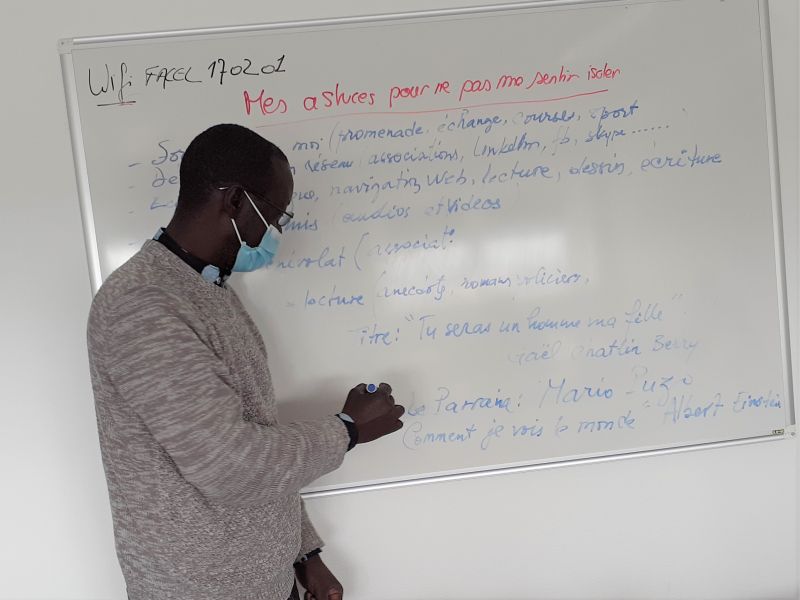 Wifi FACEL 170201
Mes astuces pour ne pas me sentir isoler
- moi (promenade, échange, courses, sport
- réseau (associations, Linkedln, fb, skype......
- navigation Web, lecture, dessin, écriture
(audios et videos)
(associat°
- lecture (anecdote, romans policiers,
Titre: "Tu seras un homme ma fille"
Berry
Le Parrain: Mario Puzo
Comment je vois le monde" Albert Einstein